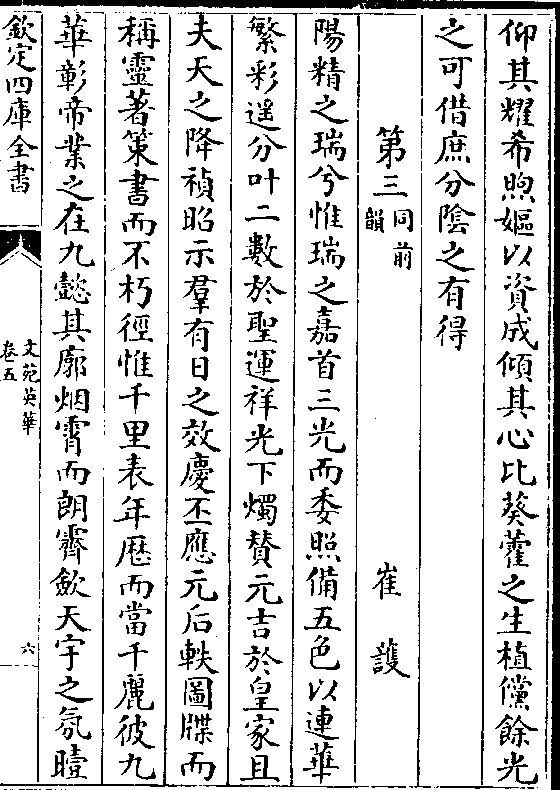 仰其耀希煦嫗以資成傾其心比葵藿之生植儻餘光
之可借庶分陰之有得
第三同前韻　崔護
陽精之瑞兮惟瑞之嘉首三光而委照備五色以連華
繁彩遥分叶二數於聖運祥光下燭賛元吉於皇家且
夫天之降禎昭示羣有日之效慶丕應元后軼圖牒而
稱靈著策書而不朽徑惟千里表年厯而當千麗彼九
華彰帝業之在九懿其廓烟霄而朗霽歛天宇之氛曀
欽定四庫全書
文苑英華
卷五
六